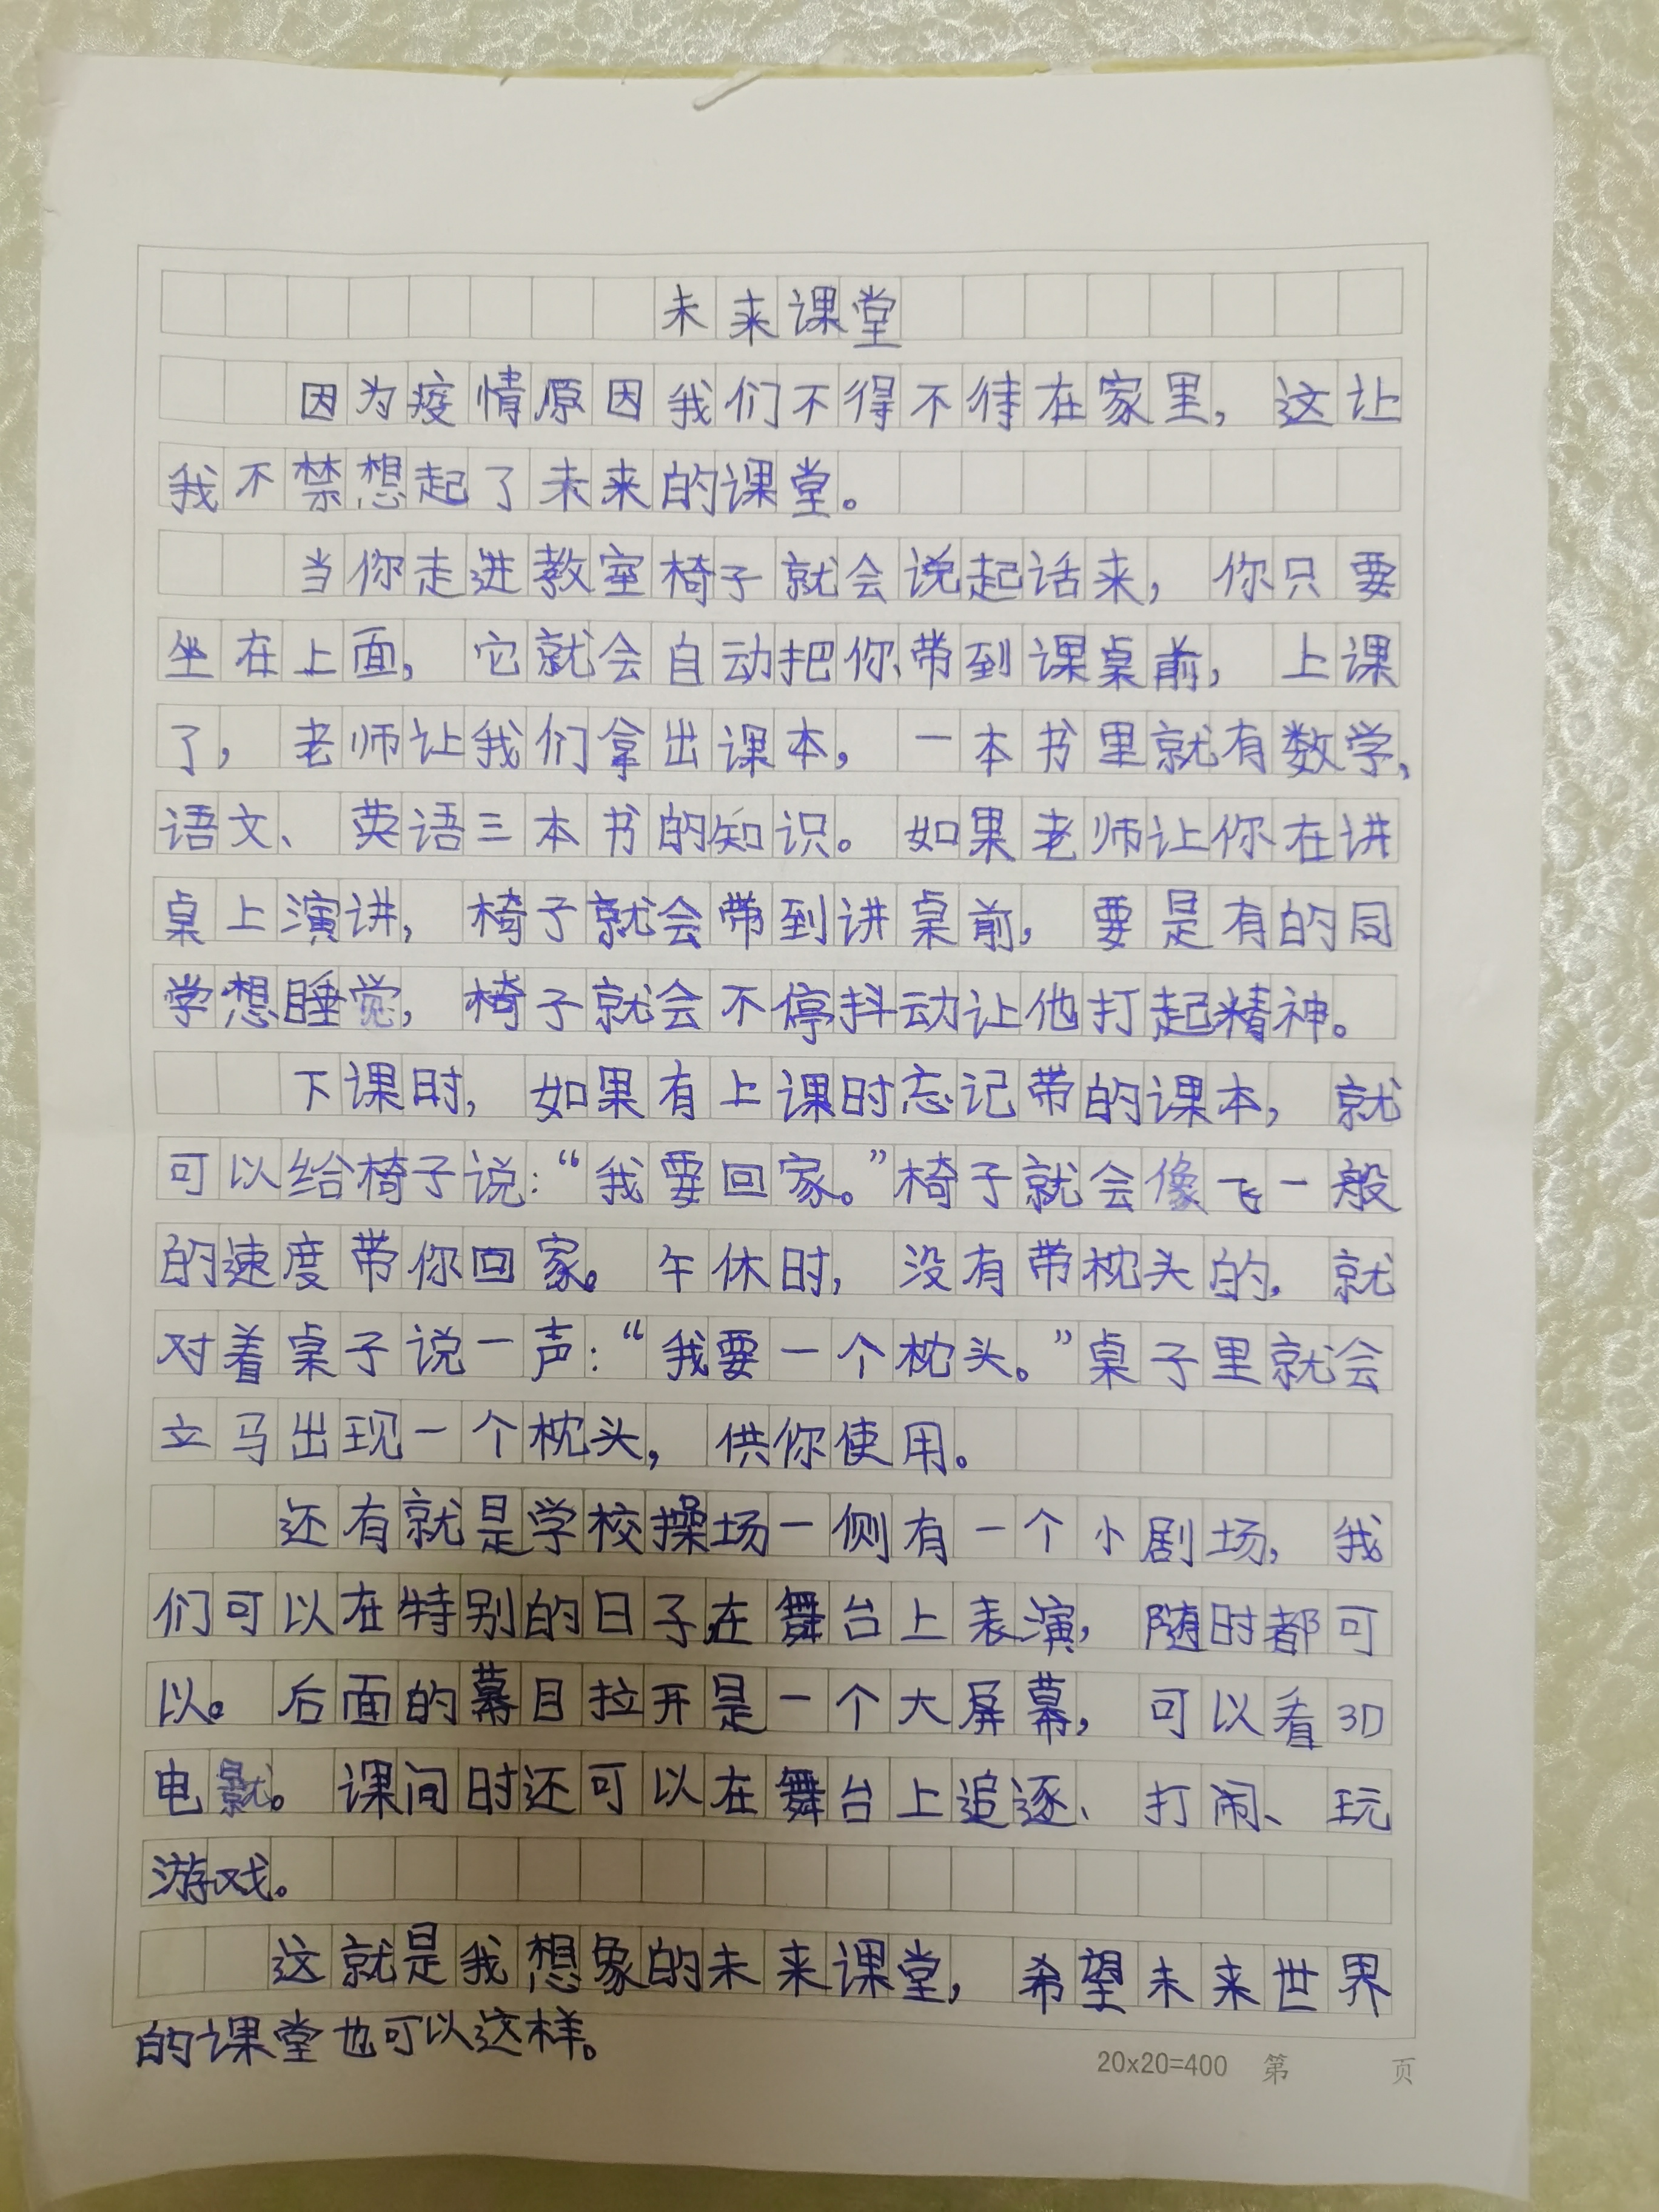 未来课堂
因为疫情原因我们不得不待在家里，这让
我不禁想起了未来的课堂。
当你走进教室椅子就会说起话来，你只要
坐在上面，它就会自动把你带到课桌前，上课
了，老师让我们拿出课本，一本书里就有数学，
语文、英语三本书的知识。如果老师让你在讲
桌上演讲，椅子就会带到讲桌前，要是有的同
学想睡觉，椅子就会不停抖动让他打起精神。
下课时，如果有上课时忘记带的课本，就
可以给椅子说：“我要回家。”椅子就会像飞一般
的速度带你回家。午休时，没有带枕头的，就
对着桌子说一声：“我要一个枕头。”桌子里就会
立马出现一个枕头，供你使用。
还有就是学校操场一侧有一个小剧场，我
们可以在特别的日子在舞台上表演，随时都可
以。后面的幕目拉开是一个大屏幕，可以看3D
电影。课间时还可以在舞台上追逐、打闹、玩
游戏。
这就是我想象的未来课堂，希望未来世界
的课堂也可以这样。
20x20=400 第 页